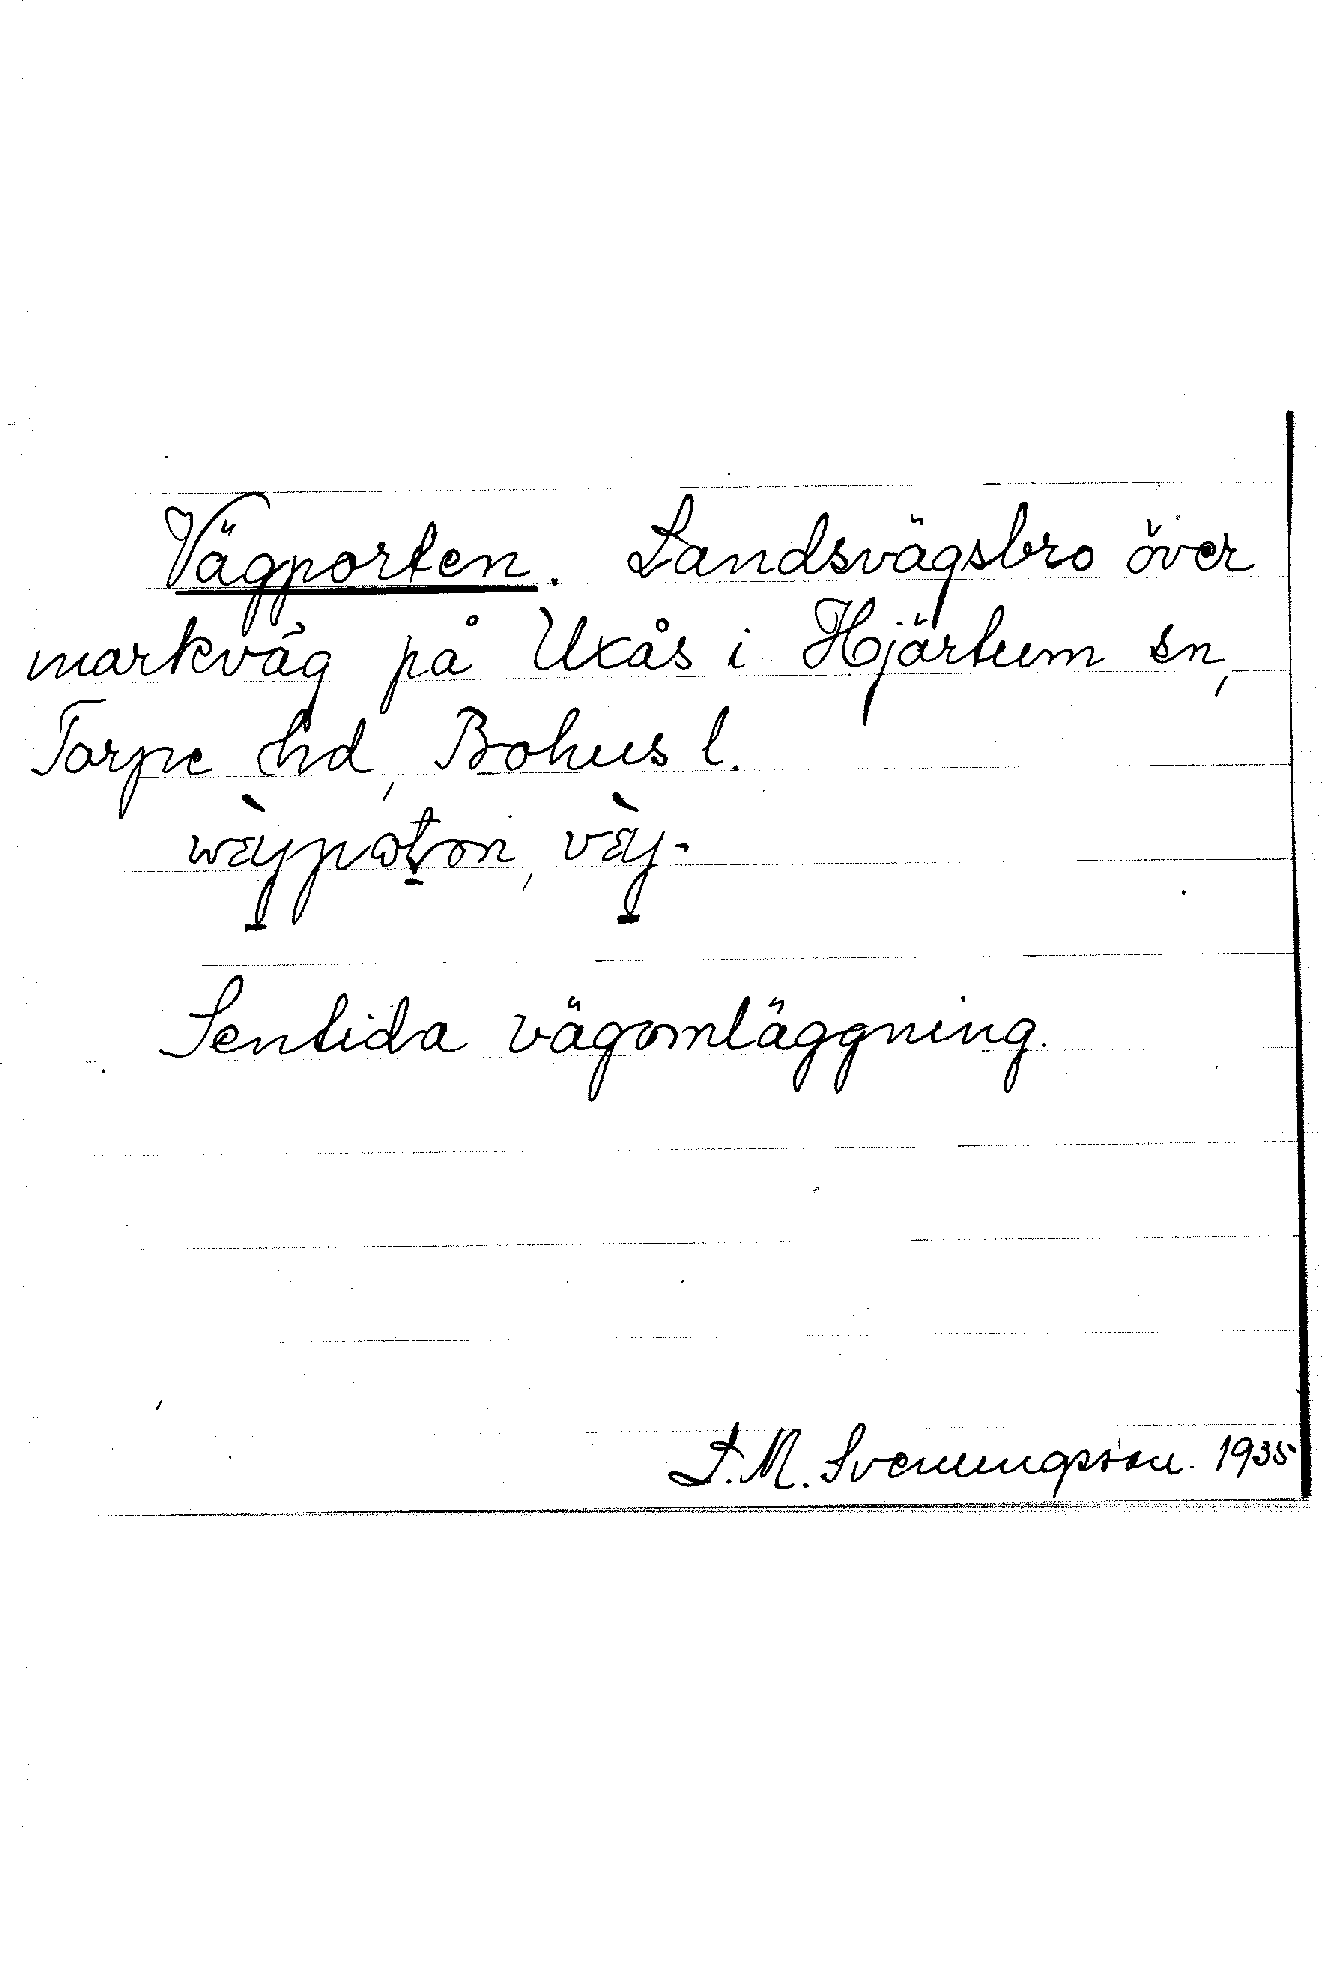 Vägporten. Landsvägsbro över
markväg på Uxås i Hjärtum sn,
Torpe hd, Bohus l.
wɛ̀jpɷtɷn, vɛ̀j-
Sentida vägomläggning.
S. M. Svenungsson. 1935